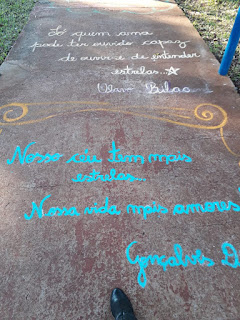 Só quem ama
pode ter ouvido capaz
de ouvir e de entender
estrelas...
Olavo Bilac
Nosso céu tem mais
estrelas...
Nossa vida mais amores
Gonçalves D